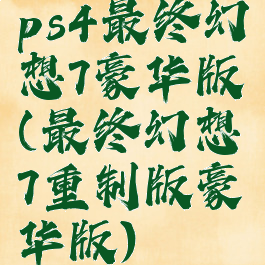 ps4最终幻
想7豪华版
(最终幻想
7重制版豪
华版)